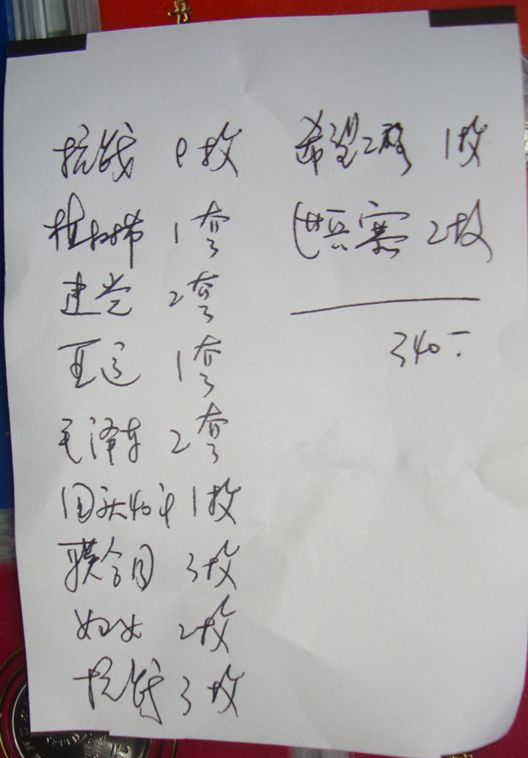 抗战 9枚
植树节 1套
建党 2套
亚运 1套
毛泽东 2套
国庆40年 1枚
联合国 3枚
妇女 2枚
抗战 3枚
希望工程 1枚
世乒赛 2枚
340.-